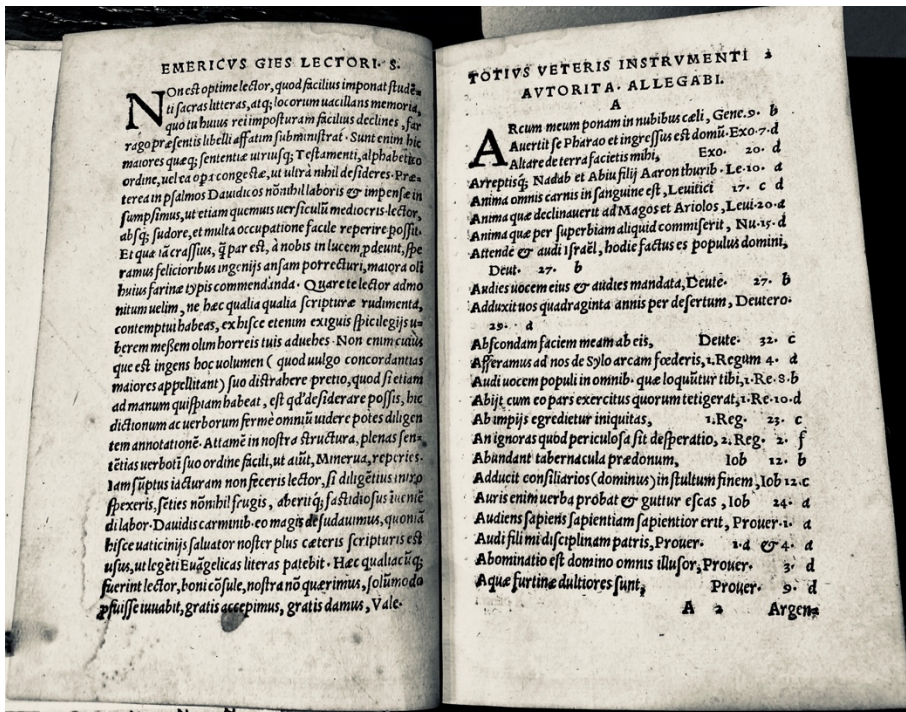 EMERICVS GIES LECTORI· S.
Non est optime lector, quod facilius imponat studē-
ti sacras litteras, atq; locorum uacillans memoria,
quo tu huius rei imposturam facilius declines, far
rago præsentis libelli affatim subministrat· Sunt enim hic
maiores quæq; sententiæ utriusq; Testamenti, alphabetico
ordine, uel ea ope congestæ, ut ultrà nihil desideres· Præ-
terea in psalmos Dauidicos nōnihil laboris & impensæ in
sumpsimus, ut etiam quemuis uersiculū mediocris lector,
absq; sudore, et multa occupatione facile reperire possit·
Et quæ iā crassius, q̄ par est, à nobis in lucem ꝓdeunt, spe
ramus felicioribus ingenijs ansam porrecturi, maiora oli
huius farinæ typis commendanda· Quare te lector admo
nitum uelim, ne hæc qualia qualia scripturæ rudimenta,
contemptui habeas, ex hisce etenim exiguis spicilegijs u-
berem messem olim horreis tuis aduehes· Non enim cuius
que est ingens hoc uolumen ( quod uulgo concordantias
maiores appellitant) suo distrahere pretio, quod si etiam
ad manum quispiam habeat, est qd' desiderare possis, hic
dictionum ac uerborum fermè omniū uidere potes diligen
tem annotationē· Attamē in nostra structura, plenas sen-
tētias uerbotī suo ordine facili, ut aiūt, Minerua, reperies·
Iam sūptus iacturam non feceris lector, si diligētius intro
spexeris, seties nōnihil frugis, aberitq; fastidiosus iueniē
di labor· Dauidis carminib· eo magis desudauimus, quoniā
hisce uaticinijs saluator noster plus cæteris scripturis est
usus, ut legēti Euāgelicas literas patebit· Hæc qualiacūq;
fuerint lector, boni cōsule, nostra nō quærimus, solūmodo
ꝓfuisse iuuabit, gratis accepimus, gratis damus, Vale·
TOTIVS VETERIS INSTRVMENTI 2
AVTORITA· ALLEGABI.
A
ARcum meum ponam in nubibus cæli, Gene.9· b
Auertit se Pharao et ingressus est domū·Exo·7·d
Altare de terra facietis mihi, Exo· 20· d
Arreptisq; Nadab et Abiu filij Aaron thurib· Le·10· a
Anima omnis carnis in sanguine est, Leuitici 17· c d
Anima quæ declinauerit ad Magos et Ariolos, Leui·20·a
Anima quæ per superbiam aliquid commiserit, Nu·15·d
Attende & audi Israël, hodie factus es populus domini,
Deut· 27· b
Audies uocem eius & audies mandata, Deute· 27· b
Adduxit uos quadraginta annis per desertum, Deutero·
29· a
Abscondam faciem meam ab eis, Deute· 32· c
Afferamus ad nos de Sylo arcam fœderis, 1.Regum 4· a
Audi uocem populi in omnib· quæ loquūtur tibi,1·Re·8.b
Abijt cum eo pars exercitus quorum tetigerat,1·Re·10·d
Ab impijs egredietur iniquitas, 1.Reg· 23· c
An ignoras quod periculosa sit desperatio, 2. Reg· 2· f
Abundant tabernacula prædonum, Iob 12· b
Adducit consiliarios (dominus) in stultum finem, Iob 12.c
Auris enim uerba probat & guttur escas, Iob 24· a
Audiens sapiens sapientiam sapientior erit, Prouer·1· a
Audi fili mi disciplinam patris, Prouer· 1·a &·4· a
Abominatio est domino omnis illusor, Prouer· 3· d
Aquæ furtiuæ dultiores sunt, Prouer· 9· d
A 2 Argen-